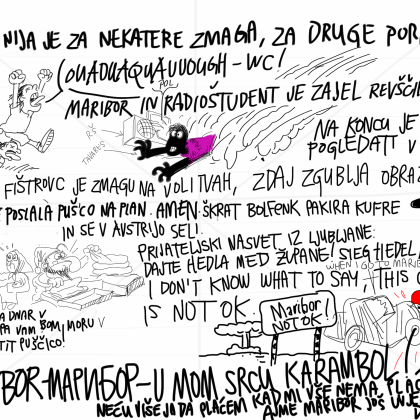 NIJA JE ZA NEKATERE ZMAGA, ZA DRUGE POR
(OUADUAQUAUUOUGH-WC!
MARIBOR IN POL RADIOŠTUDENT JE ZAJEL REVŠČI
NA KONCU JE
POGLEDATI V
FIŠTROVC JE ZMAGU NA VOLITVAH, ZDAJ ZGUBLJA OBRAZ
POSLALA PUŠICO NA PLAN. AMEN. ŠKRAT BOLFENK PAKIRA KUFRE
IN SE V AVSTRIJO SELI.
PRIJATELJSKI NASVET IZ LJUBLJANE:
DAJTE HEDLA MED ŽUPANE! SIEG HEDEL,
WHEN I GO TO MARIB
I DON'T KNOW WHAT TO SAY, THIS
IS NOT OK.
Maribor
NOT OK!
A DNAR V
PA VAM BOM MORU V
TIT PUŠČICO!
BOR-МАРИБОР-U MOM SRCU KARAMBOL!
NEĆU VIŠE JA DA PLAČEM KAD MI VIŠE NEMA PLAČ
AJME MARIBOR JOŠ UVI